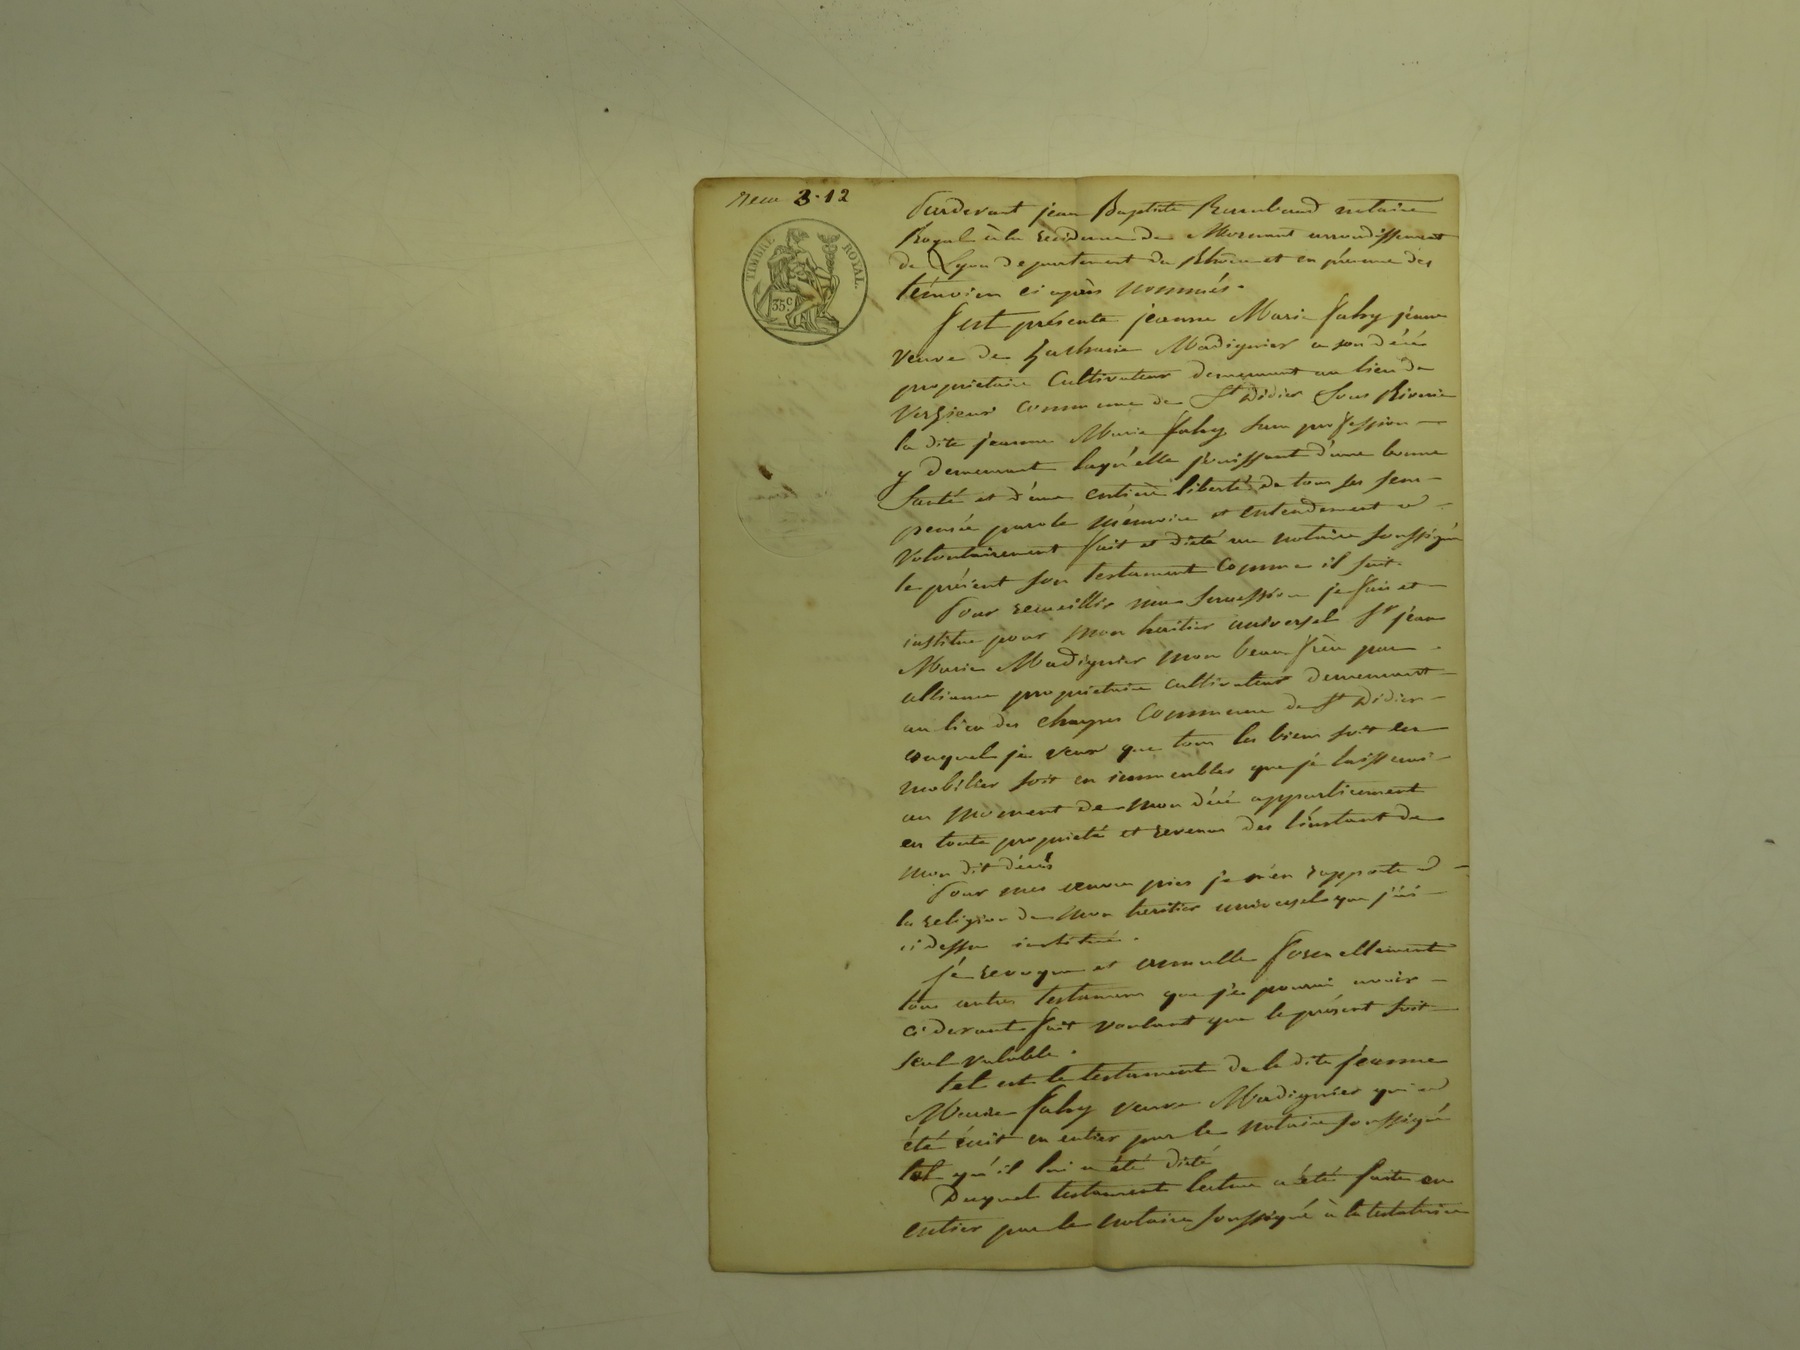 3.12
TIMBRE ROYAL.
35c
Pardevant jean Baptiste notaire
Royal à la residence de Mornant arrondissement
de Lyon departement du Rhône et en présence des
témoien ci après nommés.
S'est présenté jeanne Marie Fahy jeune
veuve de Zacharie Madignier a son décé
proprietaire Cultivateur demeurant au lieu de
commune de St Didier Sous Riverie
la dite jeanne Marie Fahy san profession
y demeurant laqu'elle jouissant d'une bonne
santé et d'une entière liberté de tous ses sens
pensée parole mémoire et entendement a
volontairement fait et dicté au notaire soussigné
le présent son testament Comme il suit.
Pour recueillir ma succession je fais et
institue pour mon heritier universel Sr jean
Marie Madignier mon beau frère par
alliance proprietaire cultivateur demeurant
au lieu des Commune de St Didier
auquel je veux que tous les biens soit en
mobilier soit en immeubles que je laisserai
au moment de mon décé appartiennent
en toute proprieté et revenu des l'instant de
mon dit décès
Pour mes oeuvres pies je m'en rapporte a
la religion de mon heritier universel que j'ai
ci dessu institué.
Je revoque et annulle formellement
tous autres testamens que je pourai avoir
ci devant fait voulant que le présent soit
seul valable.
tel est le testament de la dite jeanne
Marie Fahy veuve Madignier qui a
été écrit en entier par le notaire soussigné
tel qu'il lui a été dicté
Duquel testament lecture a été faite en
entier par le notaire soussigné à la testatrice